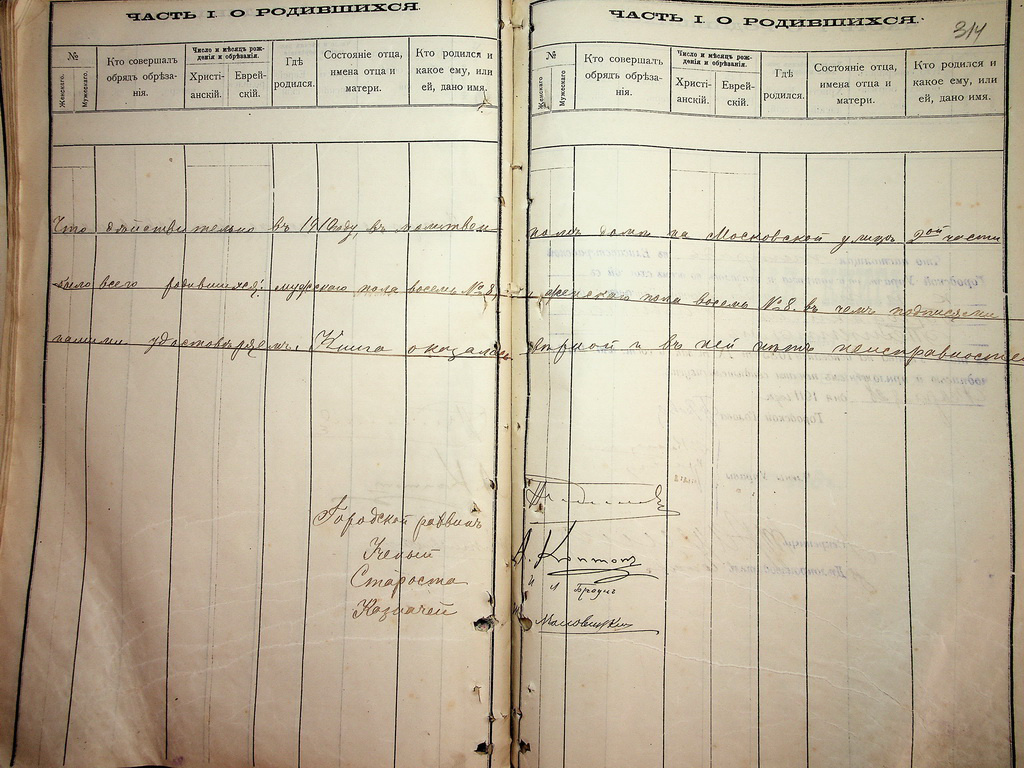 ЧАСТЬ I. О РОДИВШИХСЯ.
№
Женскаго.
Мужескаго.
Кто совершалъ обрядъ обрѣза-
нія.
Число и мѣсяцъ рож-
денія и обрѣзанія.
Христі-
анскій.
Еврей-
скій.
Гдѣ
родился.
Состояніе отца,
имена отца и
матери.
Кто родился и
какое ему, или
ей, дано имя.
ЧАСТЬ I. О РОДИВШИХСЯ.
314
№
Женскаго
Мужескаго
Кто совершалъ
обрядъ обрѣза-
нія.
Число и мѣсяцъ рож-
денія и обрѣзанія.
Христі-
анскій.
Еврей-
скій.
Гдѣ
родился.
Состояніе отца,
имена отца и
матери.
Кто родился и
какое ему, или
ей, дано имя.
Что дѣйствительно въ 1910 году, въ молитвен-номъ домѣ на Московской улицѣ 2ой части
было всего родившихся: мужскаго пола восемь № 8, и женскаго пола восемь № 8. въ чемъ подписями
нашими удостовѣряемъ. Книга оказалась вѣрной и въ ней нѣтъ неисправностей
Городской раввинъ
Ученый
Староста
Казначей